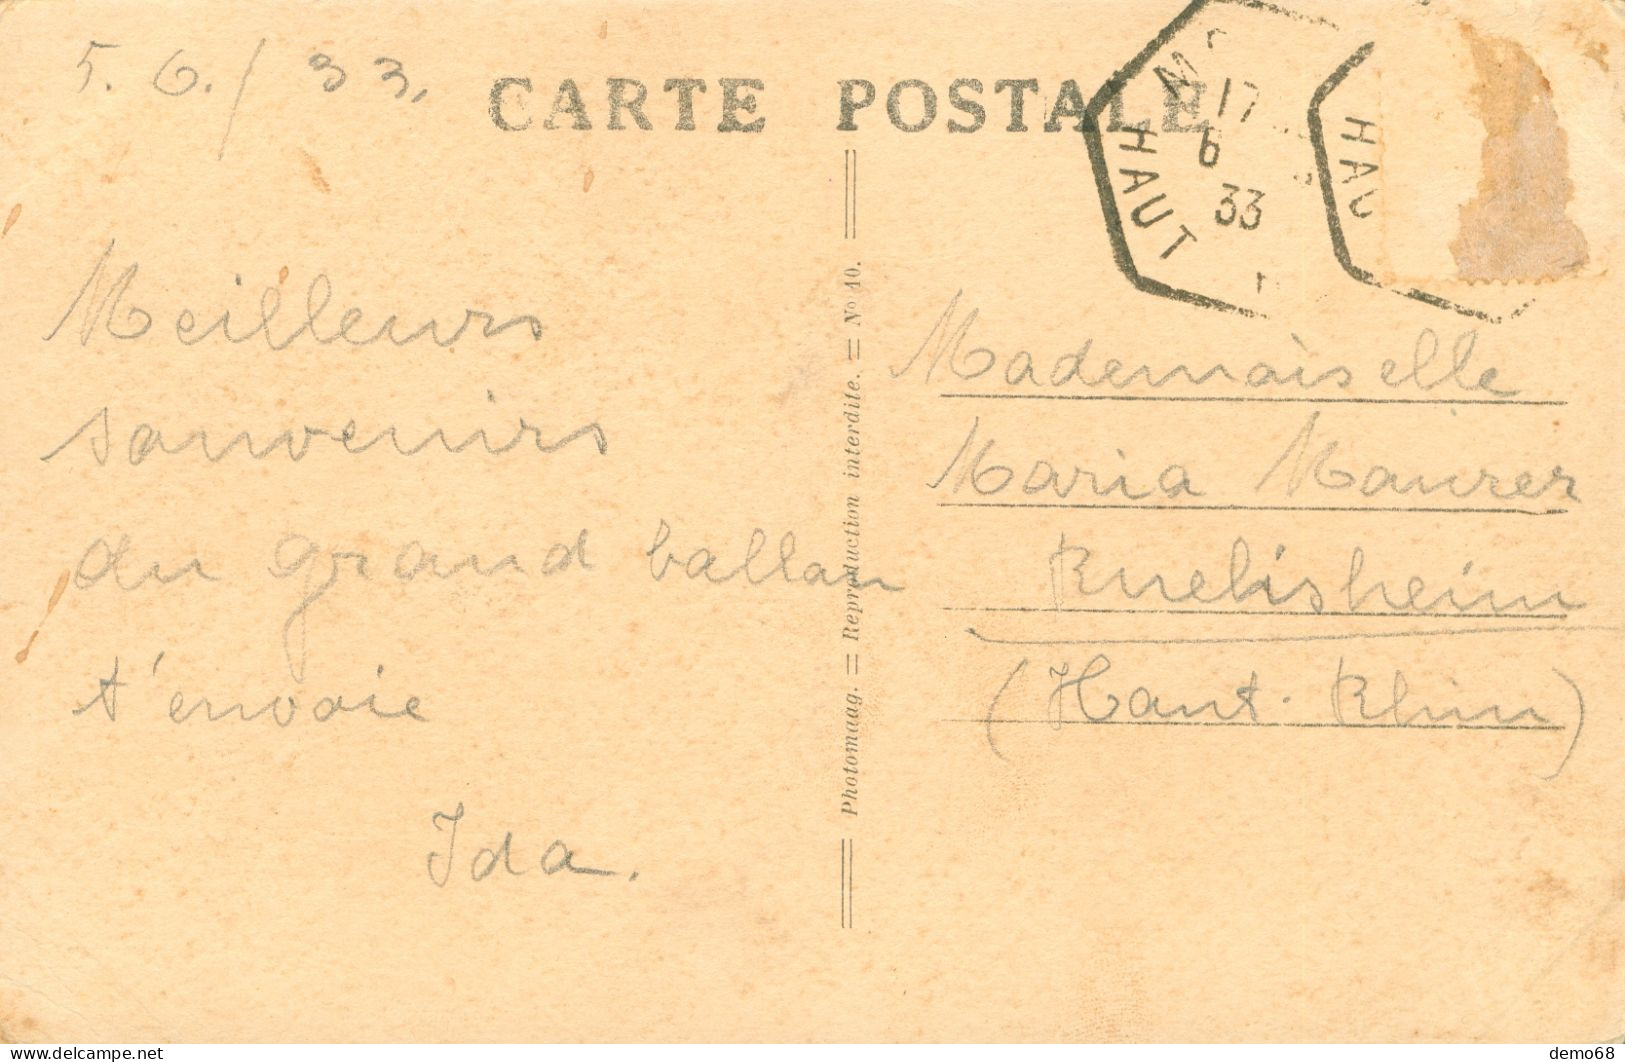 5. 6. / 33.
CARTE POSTALE
17
6
33
HAUT
HAU
Meilleurs
souvenirs
du grand ballon
t'envoie
Ida.
Photomaag. = Reproduction interdite. = No 10.
Mademoiselle
Maria Maurer
Ruelisheim
(Haut-Rhin)
delcampe.net
demo68